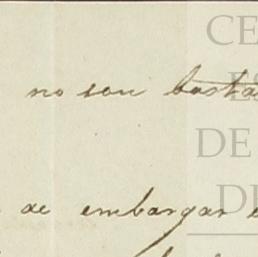 no son basta
de embargar e
CE
ES
DE
DE